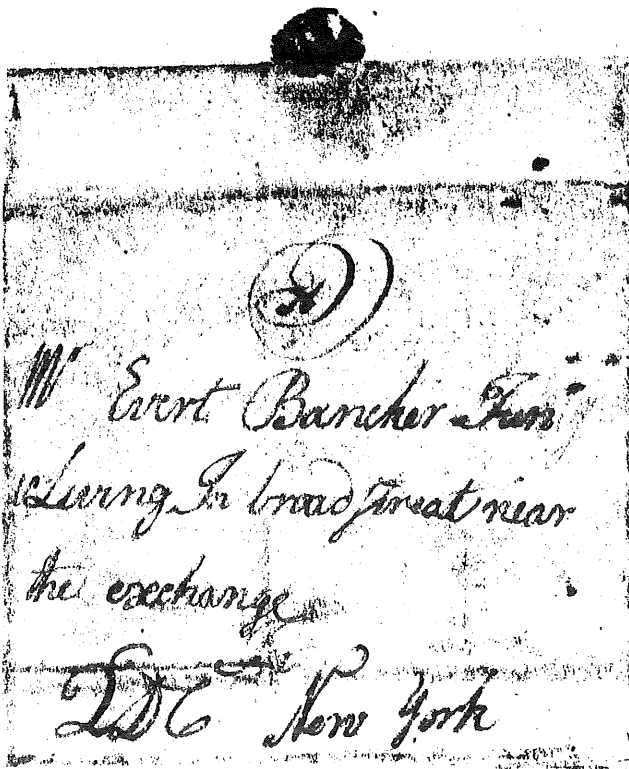 Mr Evert Bancker Junr
Living In broad streat near
the exechange
QDC New York